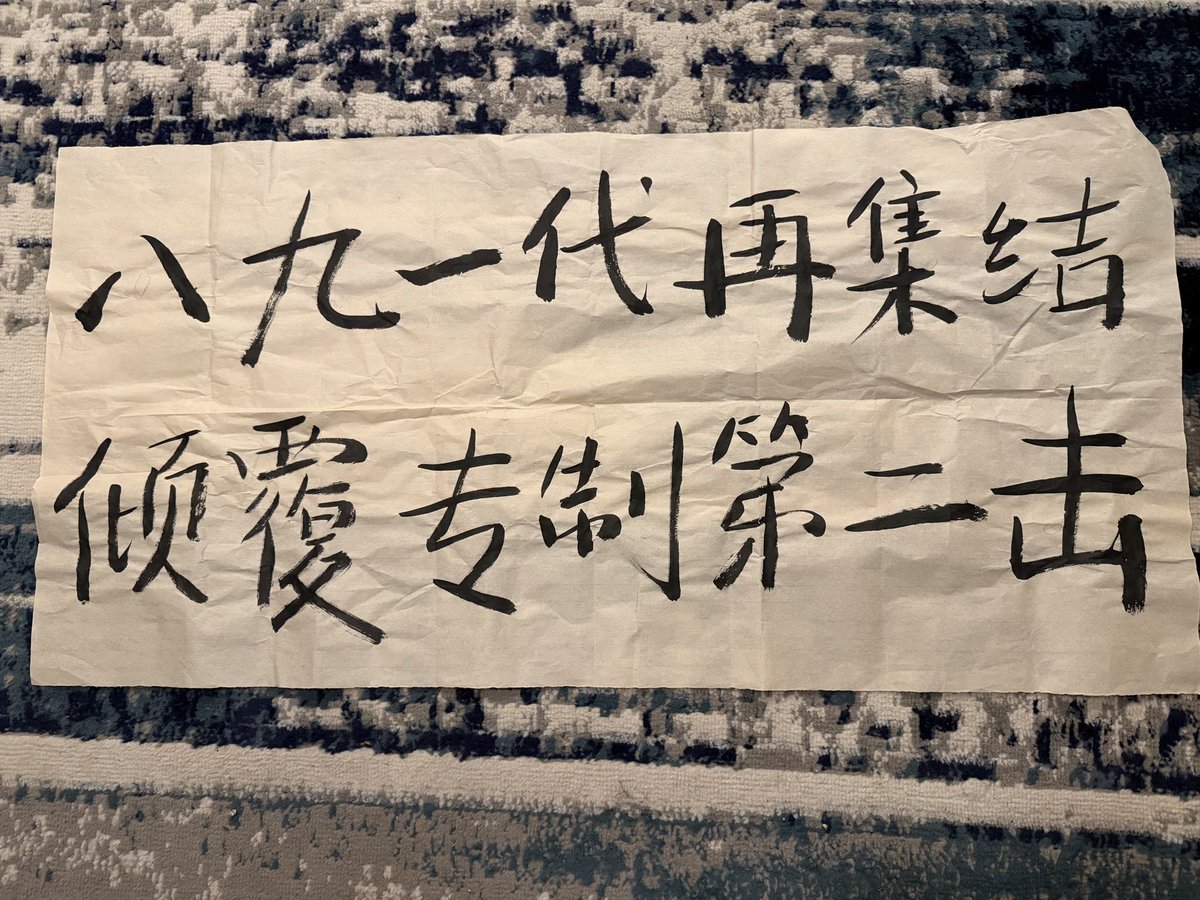 八九一代再集结
倾覆专制第二击